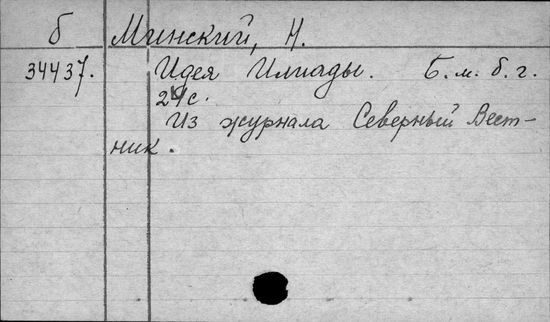 б Минский, Н.
34437. Идея Илиады. Б. м. б. г.
24 с.
Из журнала Северный Вест-
ник.